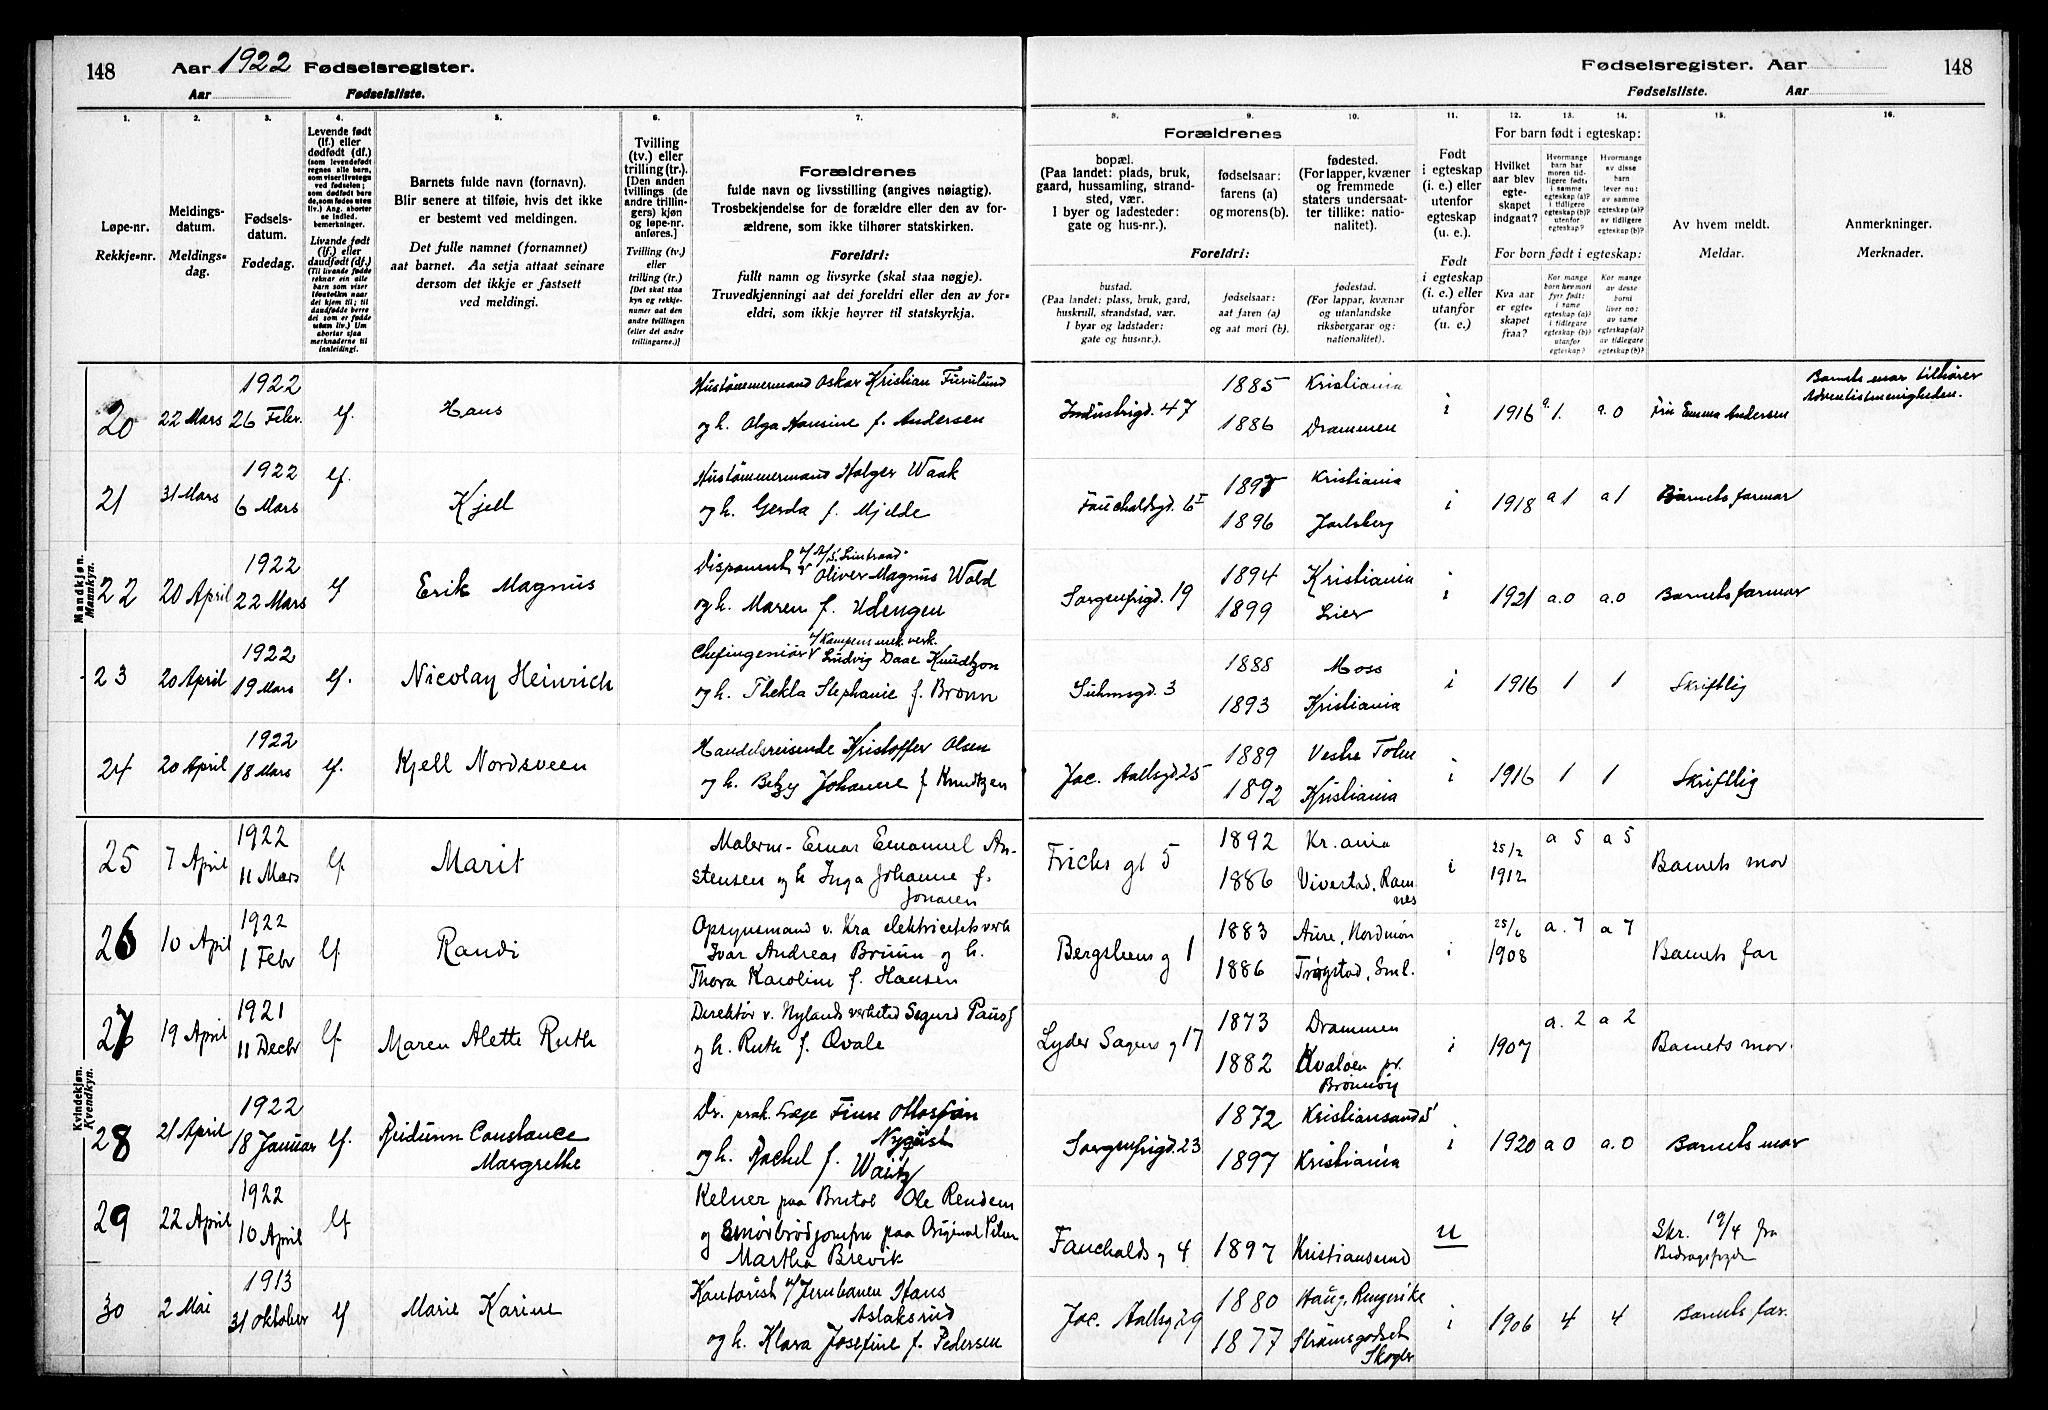 148 Aar 1922 Fødselsregister.
Aar Fødselsliste.
Fødselsregister. Aar 148
Fødselsliste. Aar
1. 2. 3. 4. 5. 6. 7.
Løpe-nr.
Rekkje-nr.
Meldings-
datum.
Meldings-
dag.
Fødsels-
datum.
Fødedag.
Levende født
(lf.) eller
dødfødt (df.)
Livande født
(lf.) eller
daudfødt (df.)
Barnets fulde navn (fornavn).
Blir senere at tilføie, hvis det ikke
er bestemt ved meldingen.
Det fulle namnet (fornamnet)
aat barnet. Aa setja attaat seinare
dersom det ikkje er fastsett
ved meldingi.
Tvilling
(tv.) eller
trilling (tr.).
[Den anden
tvillings (de
andre trillin-
gers) kjøn
og løpe-nr.
anføres.]
Tvilling (tv.)
eller
trilling (tr.)
[Det skal staa
kyn og rekkje-
numer aat den
andre tvillingen
(eller dei andre
trillingarne.)]
Forældrenes
fulde navn og livsstilling (angives nøiagtig).
Trosbekjendelse for de forældre eller den av for-
ældrene, som ikke tilhører statskirken.
Foreldri:
fullt namn og livsyrke (skal staa nøgje).
Truvedkjenningi aat dei foreldri eller den av for-
eldri, som ikkje høyrer til statskyrkja.
8. 9. 10. 11. 12. 13. 14. 15. 16.
Forældrenes
bopæl.
(Paa landet: plads, bruk,
gaard, hussamling, strand-
sted, vær.
I byer og ladesteder:
gate og hus-nr.).
fødselsaar:
farens (a)
og morens (b).
fødested.
(For lapper, kvæner
og fremmede
staters undersaat-
ter tillike: natio-
nalitet).
Foreldri:
bustad.
(Paa landet: plass, bruk, gard,
huskrull, strandstad, vær.
I byar og ladstader:
gate og hus-nr.).
fødselsaar:
aat faren (a)
og aat mori (b).
fødestad.
(For lappar, kvænar
og utanlandske
riksborgarar og:
nationalitet).
Født
i egteskap
(i. e.) eller
utenfor
egteskap
(u. e.).
Født
i egteskap
(i. e.) eller
utanfor
(u. e.)
For barn født i egteskap:
Hvilket
aar blev
egte-
skapet
indgaat?
Hvormange
barn har
moren tid-
ligere født:
i samme
egteskap (a)?
i tidligere
egteskap (b)?
utenfor
egteskap?
Hvormange
av disse
barn
lever nu:
av samme
egteskap (a)?
av tidligere
egteskap (b)?
For barn født i egteskap:
Kva aar
er egte-
skapet
fraa?
Kor mange
born hev mori
fyrr født:
i same
egteskap (a)?
i tidlegare
egteskap (b)?
utanfor
egteskap?
Kor mange
av desse
borni
liver no:
av same
egteskap (a)?
av tidlegare
egteskap (b)?
Av hvem meldt.
Meldar.
Anmerkninger.
Merknader.
Mandkjøn.
Mannkyn.
20 22 Mars 1922 26 Febr. lf. Hans Hustømmermand Oskar Kristian Furulund
og h. Olga Hansine f. Andersen
Industrigd. 47 1885 1886 Kristiania Drammen i 1916 a. 1. a. 0 Fru Emma Andersen Barnets mor tilhører
Adventistmenigheden.
21 31 Mars 1922 6 Mars lf. Kjell Hustømmermand Holger Waak
og h. Gerda f. Mjelde
Fauchaldsgd. 6 I 1897 1896 Kristiania Jarlsberg i 1918 a 1 a 1 Barnets farmor
22 20 April 1922 22 Mars lf Erik Magnus Disponent Oliver Magnus Wold
og h. Maren f. Udengen
Sorgenfrigd. 19 1894 1899 Kristiania Lier i 1921 a.0 a.0 Barnets farmor
23 20 April 1922 19 Mars lf. Nicolay Heinrich Chefingeniør v/ Kampens mek. verk. Ludvig Daae Knudtzon
og h. Thekla Stephanie f. Bronn
Suhmsgd. 3 1888 1893 Moss Kristiania i 1916 1 1 Skriftlig
24 20 April 1922 18 Mars lf. Kjell Nordsveen Handelsreisende Kristoffer Olsen
og h. Betzy Johanne f Knudtzen
Jac. Aallsgd. 25 1889 1892 Vestre Toten Kristiania i 1916 1 1 Skriftlig
Kvindekjøn.
Kvendkyn.
25 7 April 1922 11 Mars lf. Marit Malerm- Einar Emanuel An-
stensen og h Inga Johanne f.
Jonasen
Frichs gt 5 1892 1886 Kr.ania Vivestad, Ram
nes i 25/2 1912 a 5 a 5 Barnets mor
26 10 April 1922 1 Febr lf Randi Opsynsmand v. Kra elektricitetsverk
Ivar Andreas Bruun og h.
Thora Karoline f. Hansen
Bergsliens g 1 1883 1886 Aure, Nordmør Trøgstad, Sml. i 25/6 1908 a. 7 a 7 Barnets far
27 19 April 1921 11 Decbr lf. Maren Alette Ruth Direktør v. Nylands verksted Sigurd Paus
og h. Ruth f. Qvale
Lyder Sagens g 17 1873 1882 Drammen Kvaløen pr.
Brønnøy i 1907 a. 2 a 2 Barnets mor.
28 21 April 1922 18 Januar lf. Reidunn Constance
Margrethe Dr. prak. læge Finn Ottosson
Nyquist
og h. Rachel f. Waitz
Sorgenfrigd. 23 1872 1897 Kristiansand S Kristiania i 1920 a 0 a.0 Barnets mor
29 22 April 1922 10 April lf Kelner paa Bristol Ole Rendem
og Smørbrødjomfru paa Original Pilsen
Martha Brevik
Fauchalds g 4 1897 Kristiansund u Skr. 19/4 fra
Bidragsfogden
30 2 Mai 1913 31 Oktober lf Marie Karine Kontorist v/ Jernbanen Hans
Aslaksrud
og h. Klara Josefine f. Pedersen
Jac. Aallsg 29 1880 1877 Haug, Ringerike Strømsgodset
Skoger i 1906 4 4 Barnets far.